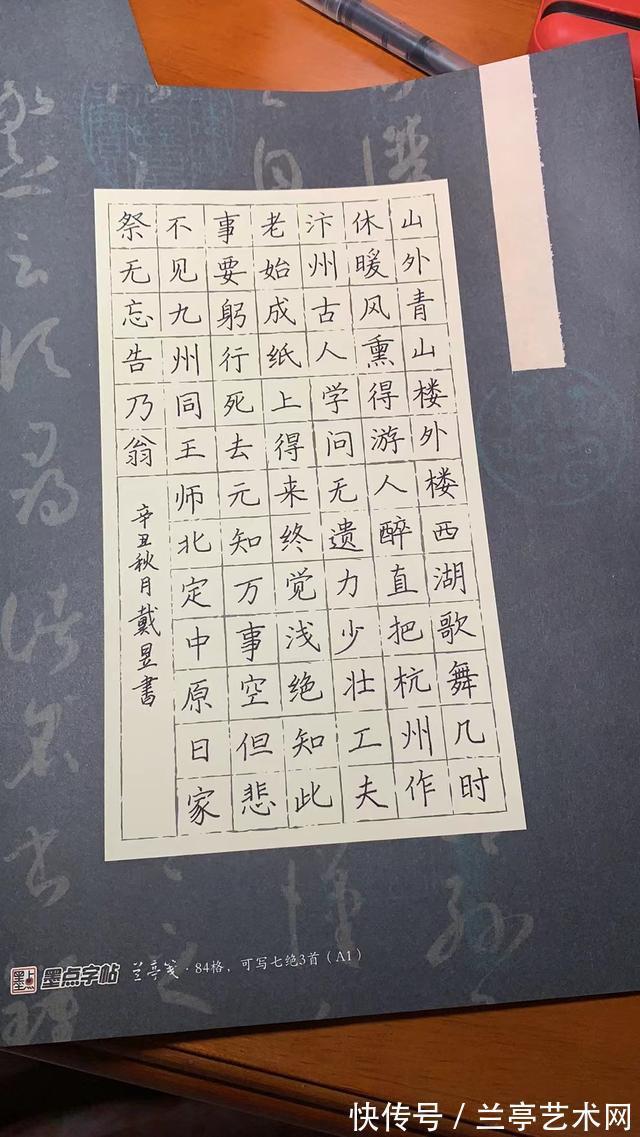 山外青山楼外楼西湖歌舞几时
休暖风熏得游人醉直把杭州作
汴州古人学问无遗力少壮工夫
老始成纸上得来终觉浅绝知此
事要躬行死去元知万事空但悲
不见九州同王师北定中原日家
祭无忘告乃翁
辛丑秋月戴昱書
墨点字帖 兰亭笺·84格，可写七绝3首（A1）
快传号／兰亭艺术网